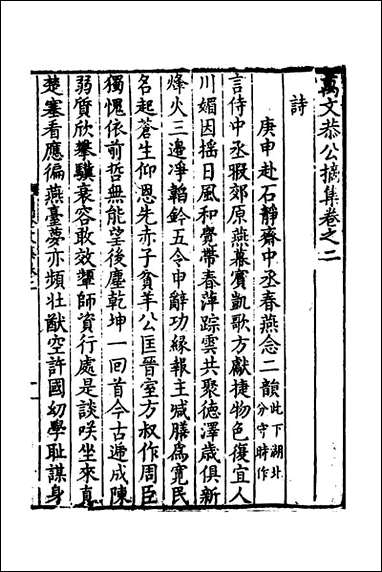 萬文恭公摘集卷之二
詩
庚申赴石靜齋中丞春燕念二韻此下湖北分守時作
言侍中丞暇郊原燕幕賓凱歌方獻捷物色復宜人
川媚因摇日風和覺帶春萍踪雲共聚德澤歲俱新
烽火三邊净韜鈐五令申辭功緣報主减膳爲寬民
名起蒼生仰恩先赤子貧羊公匡晉室方叔作周臣
獨愧依前哲無能望後塵乾坤一回首今古遞成陳
弱質欣攀驥衰容敢效顰師資行處是談咲坐來真
楚塞看應徧燕臺夢亦頻壯猷空許國幼學耻謀身